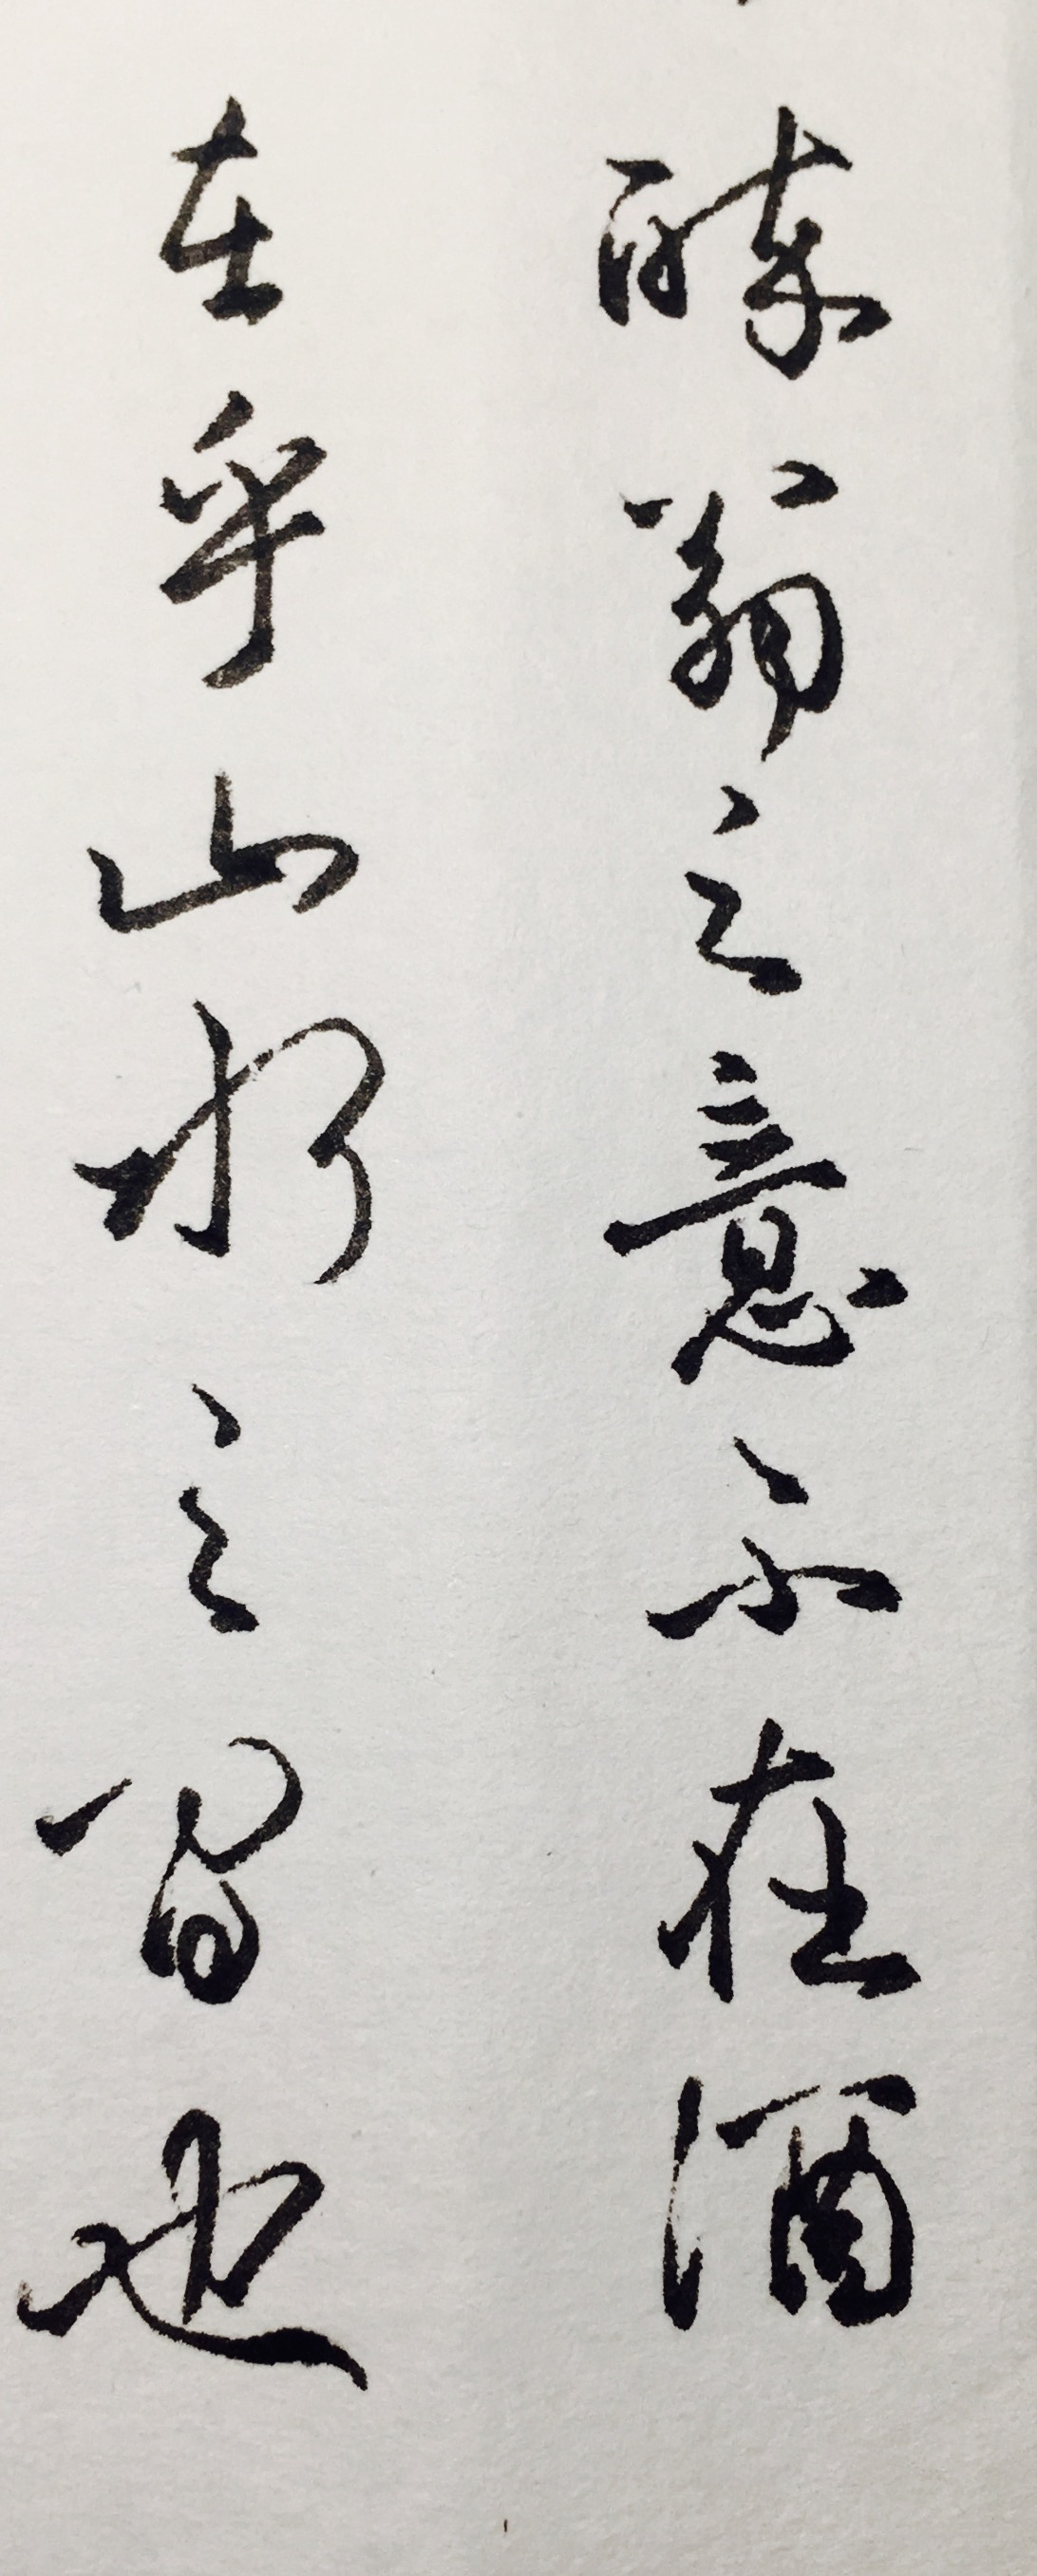 醉翁之意不在酒
在乎山水之間也